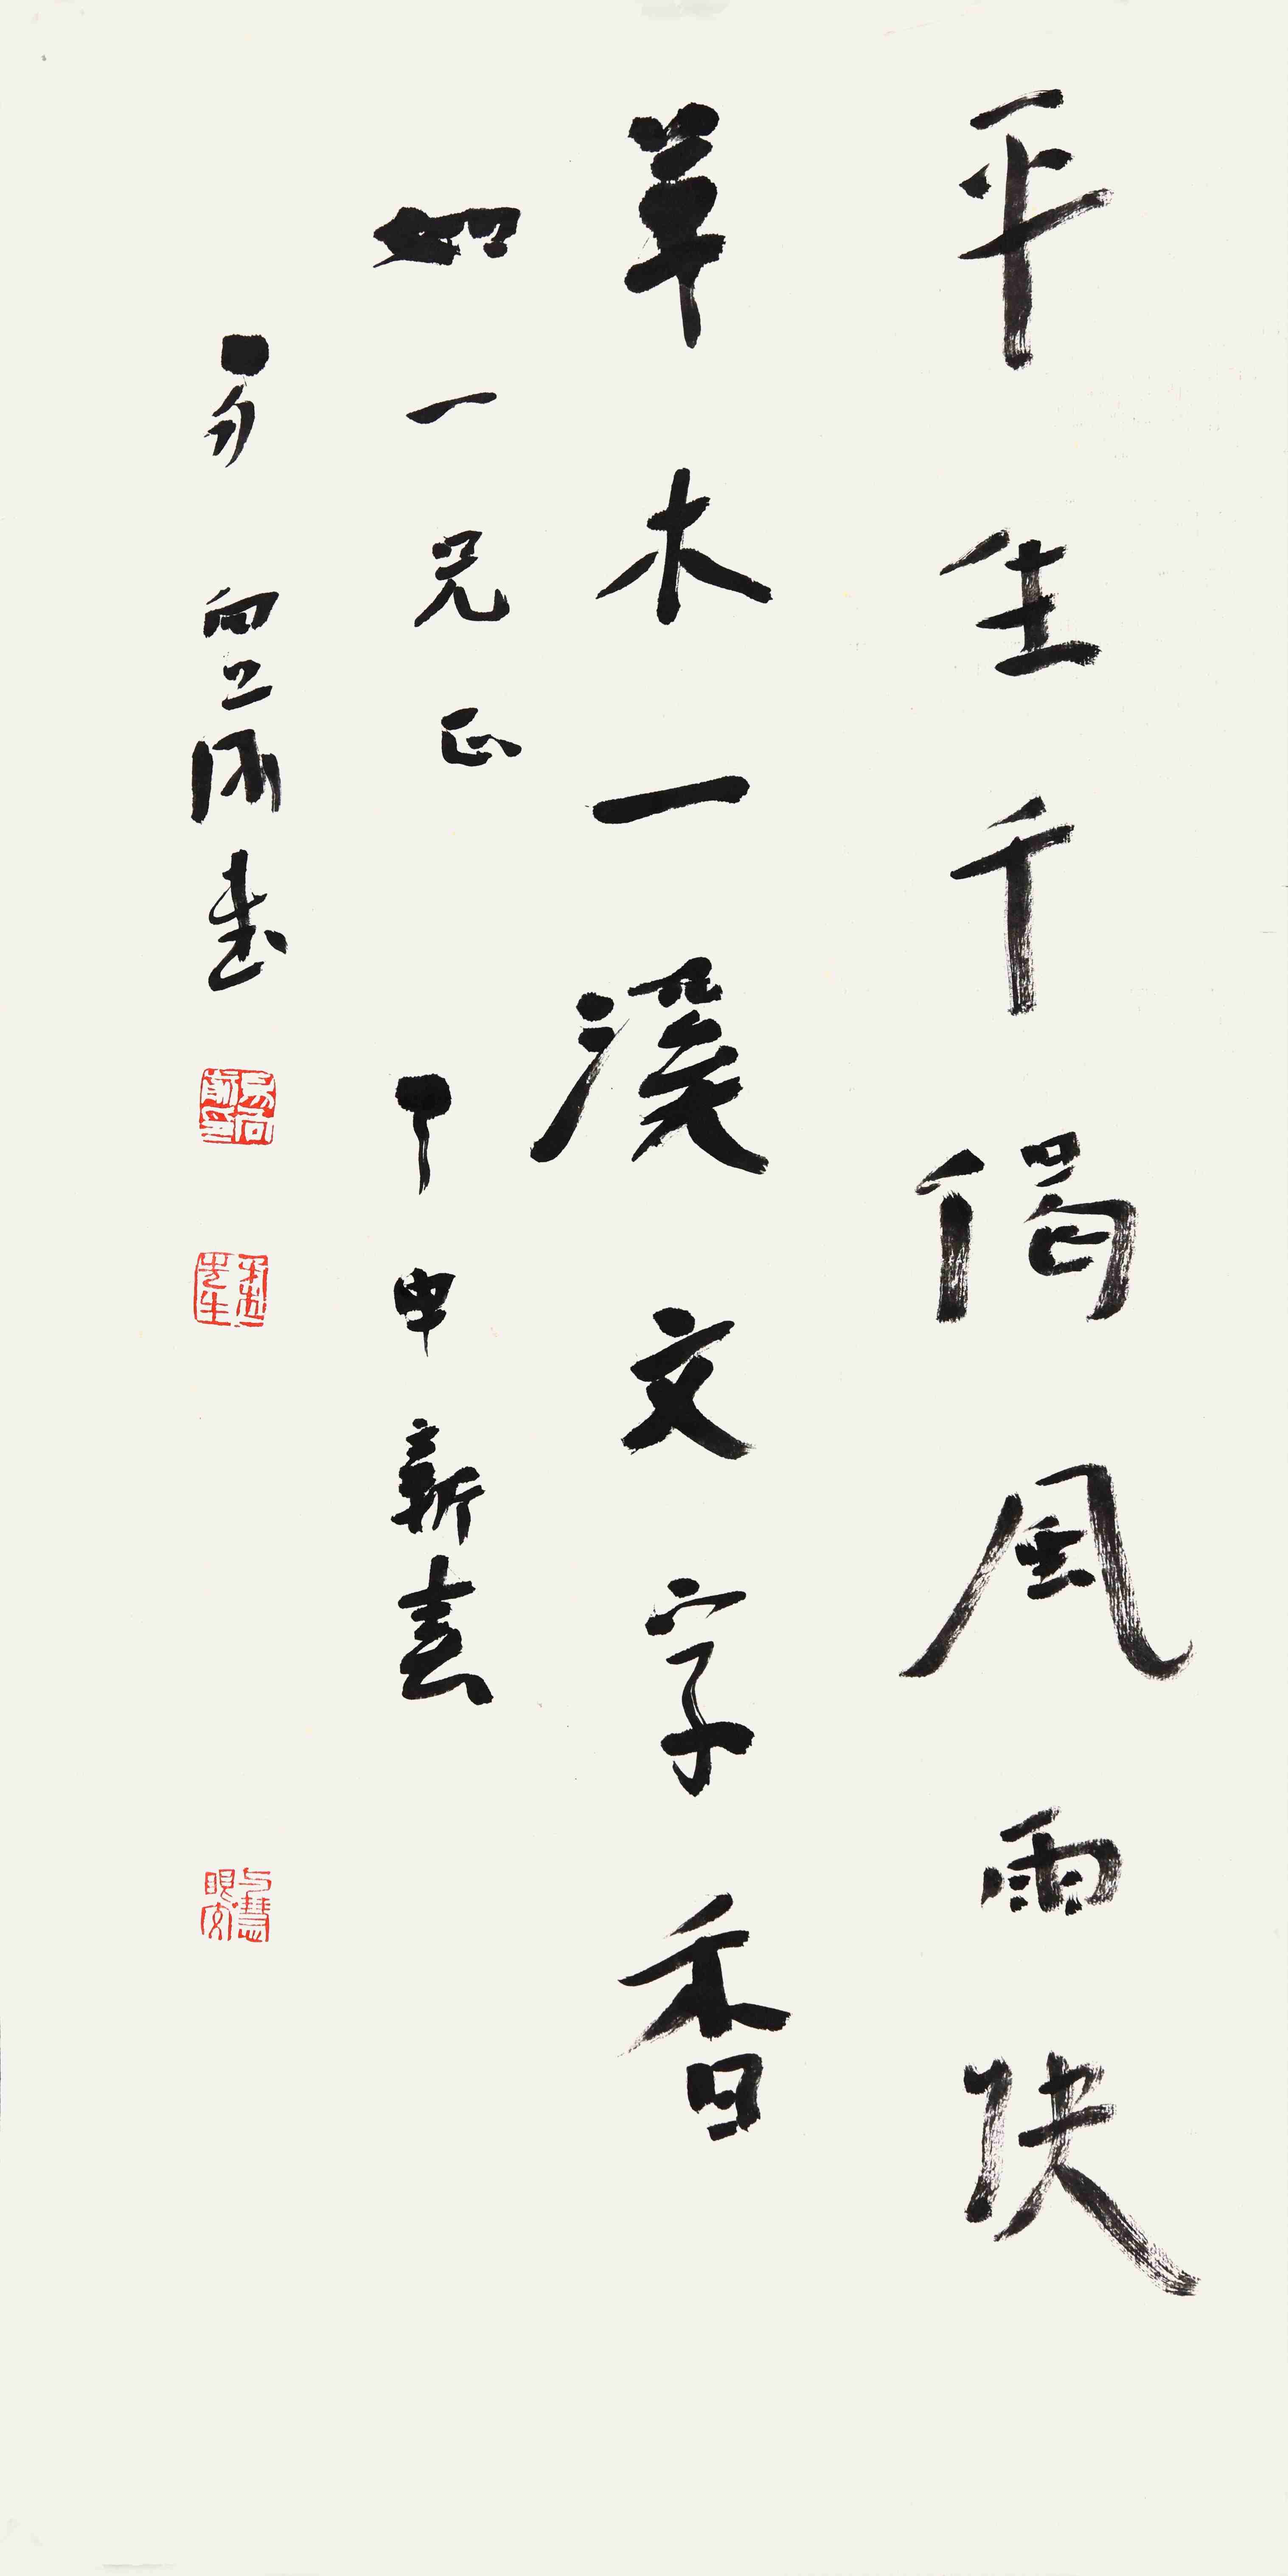 平生千偈風雨快
草木一溪文字香
如一兄正 甲申新春
易向前書
易向前印